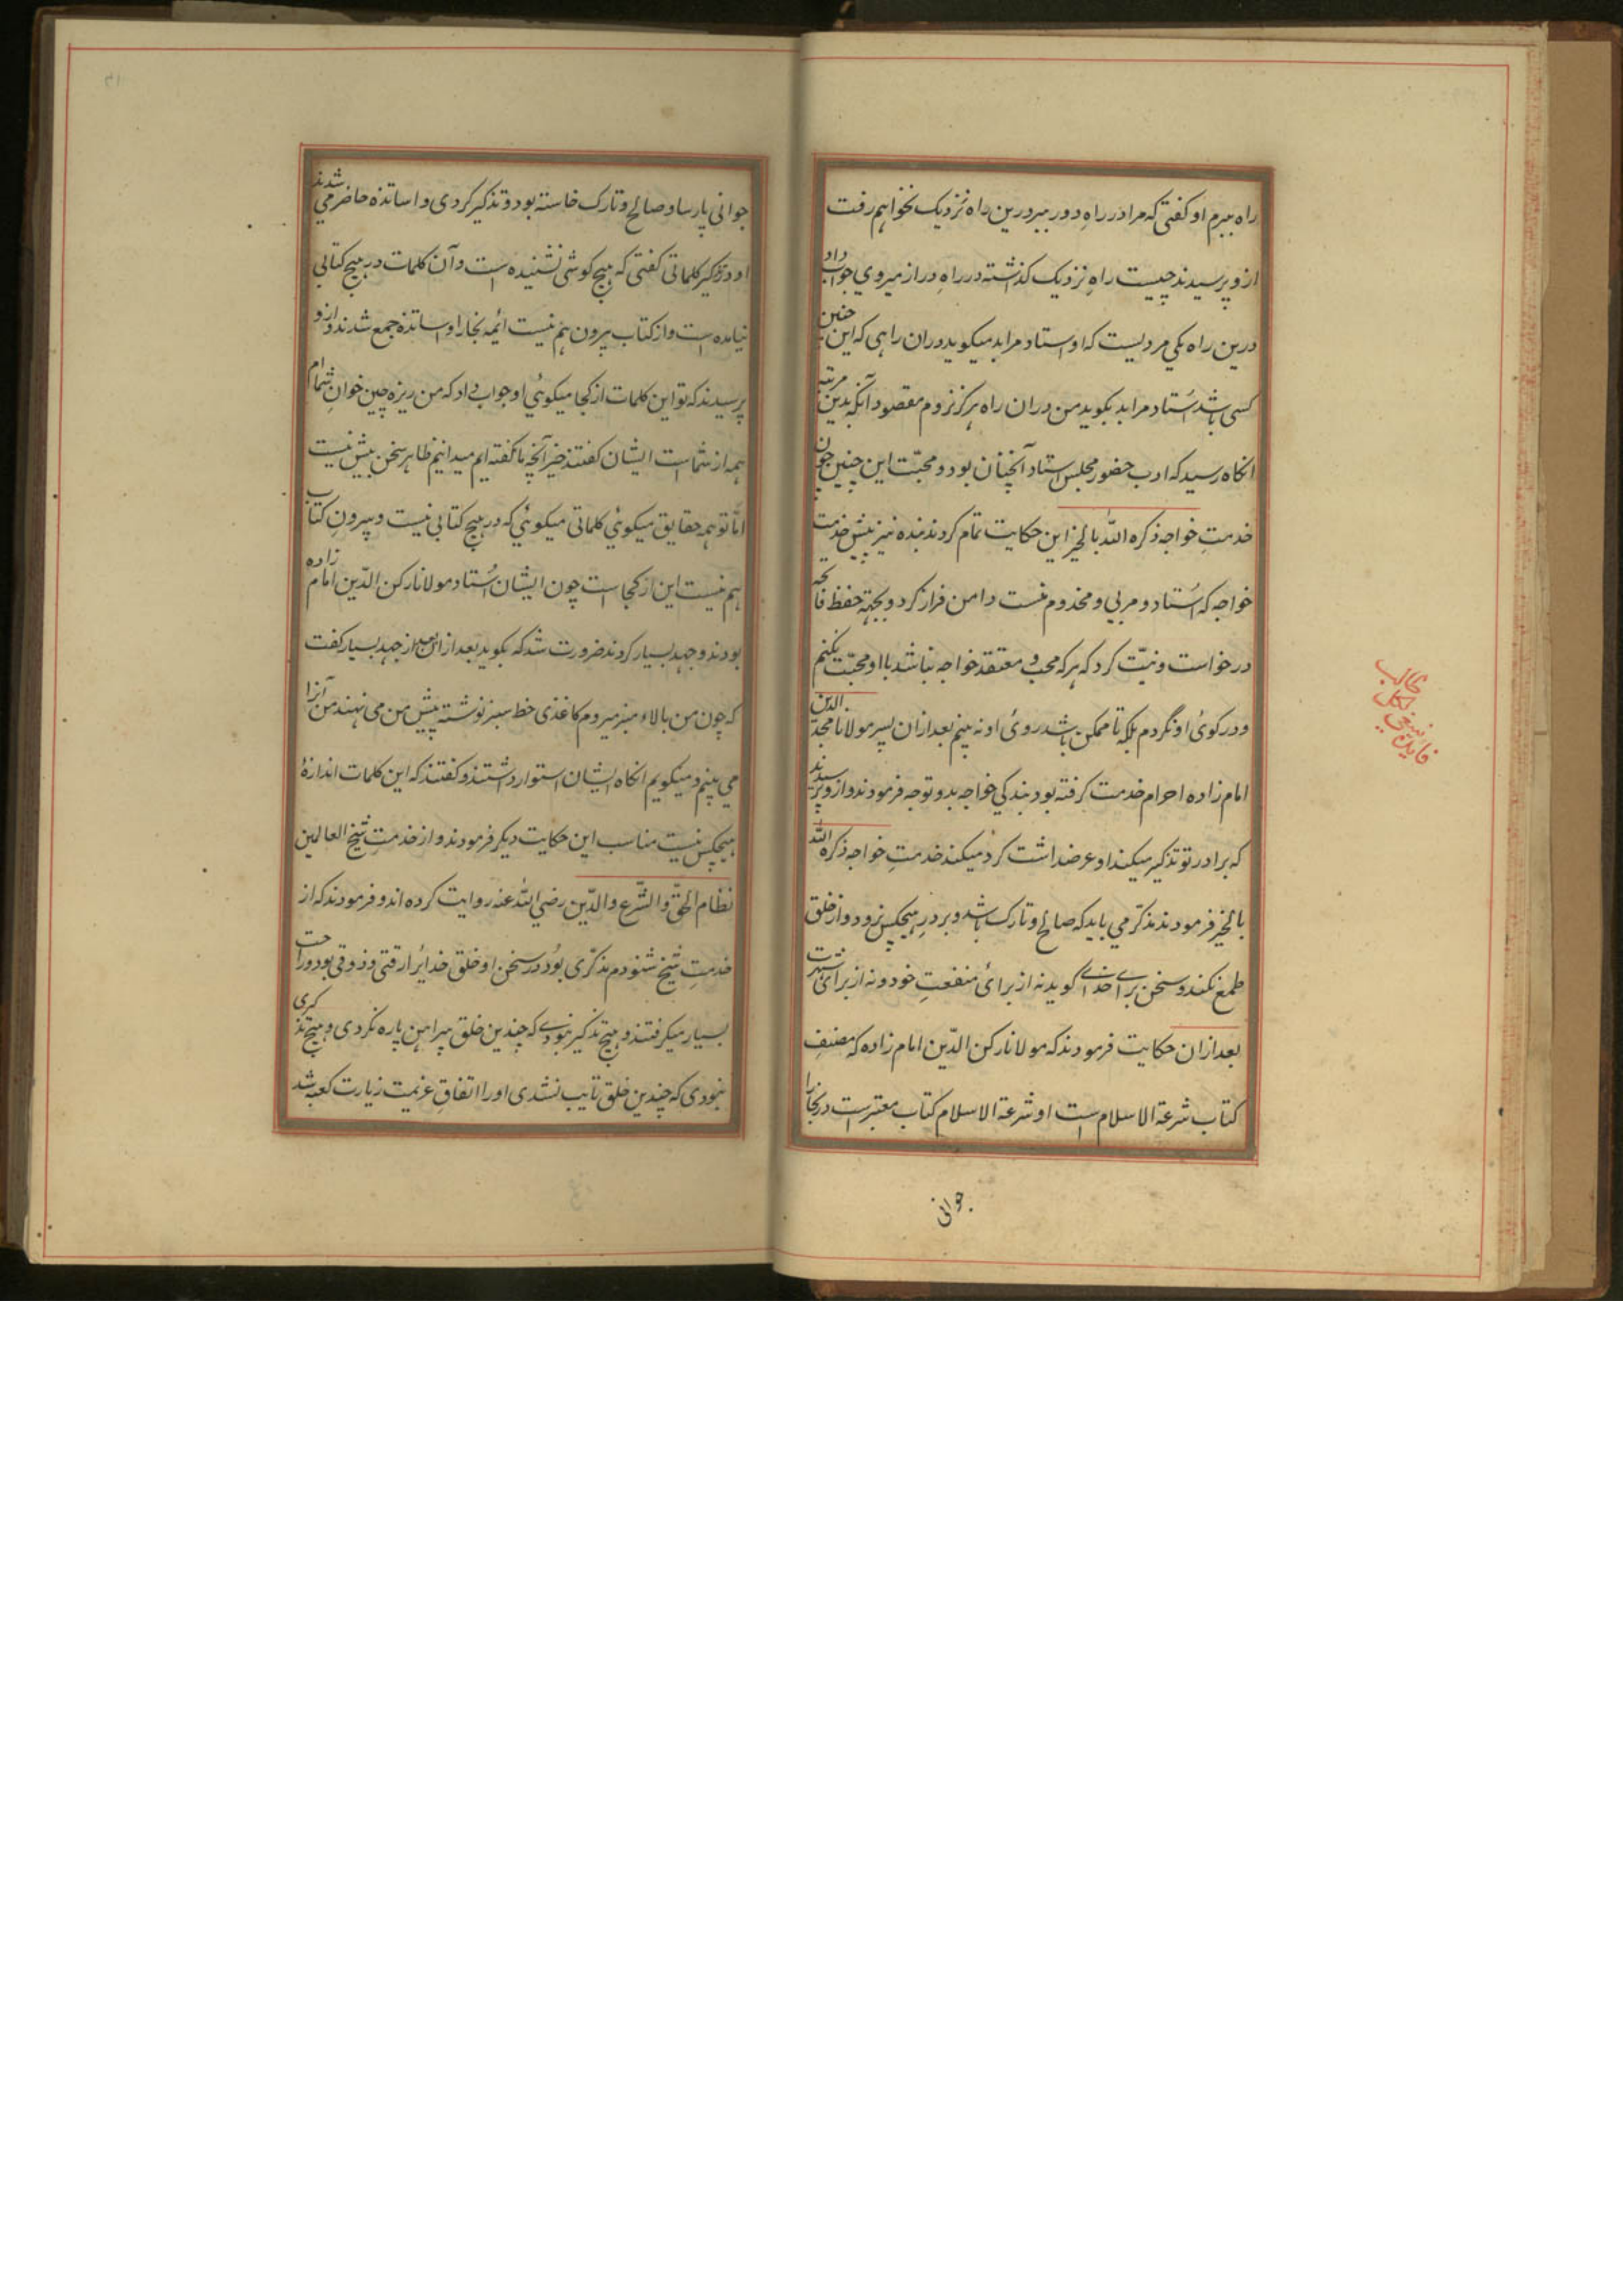 راه ببرم او کفتی که مرا در راهِ دور ببر درین راه نزدیک نخواهم رفت
ازو پرسیدند چیست راهِ نزدیک کذاشته در راهِ دراز میروی جواب داد
درین راه یکی مردیست که اوستاد مرا بد میکوید دران راهی که این چنین
کسی باشد اُستاد مرا بد بکوید من دران راه هرکز نروم مقصود آنکه بدین مرتبه
انکاه رسید که ادب حضور مجلس استاد آنچنان بود و محبّت این چنین چون
خدمتِ خواجه ذکره اللّٰه بالخیر این حکایت تمام کردند بنده نیز پیش خدمت
خواجه که اُستاد و مربی و مخدوم منست دامن فراز کرد و بجهة حفظ فاتحه
درخواست و نیّت کرد که هرکه محب و معتقد خواجه نباشد با او محبّت نکنم
و در کوئ او نگردم بلکه تا ممکن باشد روئ او نه بینم بعد ازان پسر مولانا مجد الدین
امام زاده احرام خدمت کرفته بود بندکی خواجه بدو توجه فرمودند و ازو پرسیدند
که برادر تو تذکیر میکند او عرضداشت کرد میکند خدمتِ خواجه ذکره اللّٰه
بالخیر فرمودند مذکّر می باید که صالح و تارک باشد و بر درِ هیچکس نرود و از خلق
طمع نکند و سخن برای خدای کوید نه از برائ منفعتِ خود و نه از برائ شهرت
بعد ازان حکایت فرمودند که مولانا رکن الدّین امام زاده که مصنفِ
کتاب شرعة الاسلام است او شرعة الاسلام کتاب معتبر است در بخارا
جوانی
جوانی پارسا و صالح و تارک خاسته بود و تذکیر کردی و اساتذه حاضر می شدند
او در تذکیر کلماتی کفتی که هیچ کوشی نشنیده است و آن کلمات در هیچ کتابی
نیامده است و از کتاب بیرون هم نیست ائمه بخارا و اساتذه جمع شدند و ازو
پرسیدند که تو این کلمات از کجا میکوئی او جواب داد که من ریزه چین خوانِ شما ام
همه از شماست ایشان کفتند خیر آنچه ما کفته ایم میدانیم ظاهر سخن بیش نیست
امّا تو همه حقایق میکوئی کلماتی میکوئی که در هیچ کتابی نیست و بیرونِ کتاب
هم نیست این از کجا است چون ایشان اُستاد مولانا رکن الدّین امام زاده
بودند و جهد بسیار کردند ضرورت شد که بکوید بعد ازان از جهد بسیار کفت
که چون من بالاء منبر میروم کاغذی خط سبز نوشته پیش من می نهند من آنرا
می بینم و میکویم انکاه ایشان استوار داشتند و کفتند که این کلمات اندازهٔ
هیچکس نیست مناسب این حکایت دیکر فرمودند و از خدمتِ شیخ العالمین
نظام الحقّ و الشّرع و الدّین رضی اللّٰه عنه روایت کرده اند و فرمودند که از
خدمتِ شیخ شنودم مذکّری بُود در سخن او خلق خدایرا رقتی و ذوقی بود و راحت
بسیار میکرفتند و هیچ تذکیر نبودے که چندین خلق پیراهن پاره نکردی و هیچ تذکیری
نبودی که چندین خلق تایب نشدی او را اتفاقِ عزیمت زیارت کعبه شد